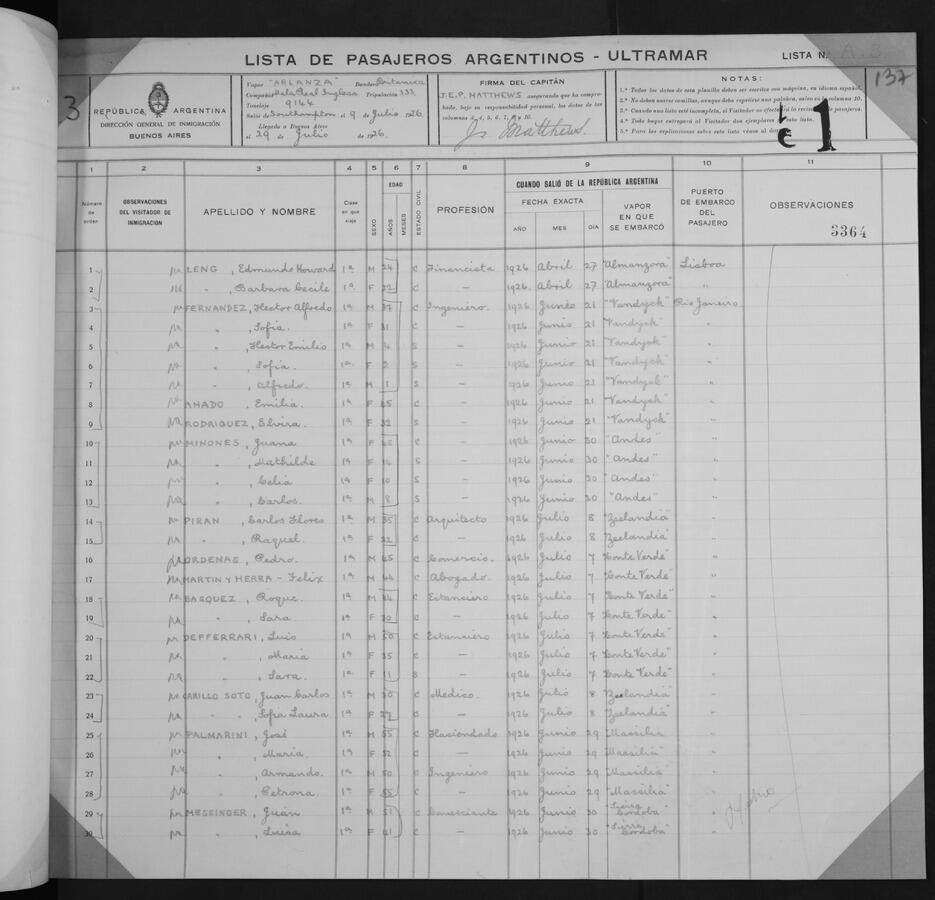 LISTA DE PASAJEROS ARGENTINOS - ULTRAMAR
LISTA N.
137
3
REPÚBLICA ARGENTINA
DIRECCIÓN GENERAL DE INMIGRACIÓN
BUENOS AIRES
Vapor "ARLANZA" Bandera Britanica
Compañia Mala Real Inglesa Tripulación 333
Tonelaje 9144
Salió de Southampton el 9 de Julio 1926
Llegada a Buenos Aires
el 29 de Julio de 1926.
FIRMA DEL CAPITÁN
J.E.P. MATTHEWS. asegurando que ha compro-
bado, bajo su responsabilidad personal, los datos de las
columnas 3, 4, 5, 6, 7, 8, 9 y 10.
Matthews
NOTAS:
1.ª Todos los datos de esta planilla deben ser escritos con máquina, en idioma español.
1 2 3 4 5 6 7 8 9 10 11
Número de orden
OBSERVACIONES DEL VISITADOR DE INMIGRACIÓN
APELLIDO Y NOMBRE
Clase en que viaja
SEXO
EDAD
AÑOS
MESES
ESTADO CIVIL
PROFESIÓN
CUANDO SALIÓ DE LA REPÚBLICA ARGENTINA
FECHA EXACTA
AÑO MES DIA
VAPOR EN QUE SE EMBARCÓ
PUERTO DE EMBARCO DEL PASAJERO
OBSERVACIONES
3364
1 LENG, Edmundo Howard 1ª M 24 C Financista 1926 Abril 27 "Almanzora" Lisboa
2 " , Barbara Cecile 1ª F 22 C — 1926 Abril 27 "Almanzora" "
3 FERNANDEZ, Hector Alfredo 1ª M 37 C Ingeniero 1926 Junio 21 "Vandyck" Rio Janeiro
4 " , Sofia. 1ª F 31 C — 1926 Junio 21 "Vandyck" "
5 " , Hector Emilio 1ª M 4 S — 1926 Junio 21 "Vandyck" "
6 " , Sofia. 1ª F 2 S — 1926 Junio 21 "Vandyck" "
7 " , Alfredo. 1ª M 1 S — 1926 Junio 21 "Vandyck" "
8 AMADO , Emilia. 1ª F 65 C — 1926 Junio 21 "Vandyck" "
9 RODRIGUEZ, Elvira. 1ª F 32 C — 1926 Junio 21 "Vandyck" "
10 MINONES, Juana 1ª F 45 C — 1926 Junio 30 "Andes" "
11 " , Mathilde 1ª F 14 S — 1926 Junio 30 "Andes" "
12 " , Celia 1ª F 10 S — 1926 Junio 30 "Andes" "
13 " , Carlos. 1ª M 8 S — 1926 Junio 30 "Andes" "
14 PIRAN, Carlos Flores 1ª M 35 C Arquitecto 1926 Julio 8 "Zeelandia" "
15 " , Raquel. 1ª F 22 C — 1926 Julio 8 "Zeelandia" "
16 ORDENAS, Pedro. 1ª M 45 C Comercio. 1926 Julio 7 "Conte Verde" "
17 MARTIN Y HERRA - Felix 1ª M 44 C Abogado. 1926 Julio 7 "Conte Verde" "
18 BASQUEZ, Roque. 1ª M 44 C Estanciero 1926 Julio 7 "Conte Verde" "
19 " , Sara. 1ª F 30 C — 1926 Julio 7 "Conte Verde" "
20 DEFFERRARI, Luis 1ª M 50 C Estanciero 1926 Julio 7 "Conte Verde" "
21 " , Maria 1ª F 35 C — 1926 Julio 7 "Conte Verde" "
22 " , Sara. 1ª F 11 S — 1926 Julio 7 "Conte Verde" "
23 CARILLO SOTO, Juan Carlos 1ª M 30 C Medico. 1926 Julio 8 "Zeelandia" "
24 " " , Sofia Laura 1ª F 27 C — 1926 Julio 8 "Zeelandia" "
25 PALMARINI, José 1ª M 55 C Haciendado 1926 Junio 29 "Massilia" "
26 " , Maria. 1ª F 52 C — 1926 Junio 29 "Massilia" "
27 " , Armando. 1ª M 50 C Ingeniero 1926 Junio 29 "Massilia" "
28 " , Petrona. 1ª F 55 C — 1926 Junio 29 "Massilia" "
29 MESSINGER, Juan 1ª M 51 C Comerciante 1926 Junio 30 "Sierra Cordoba" "
30 " , Luisa 1ª F 41 C — 1926 Junio 30 "Sierra Cordoba" "